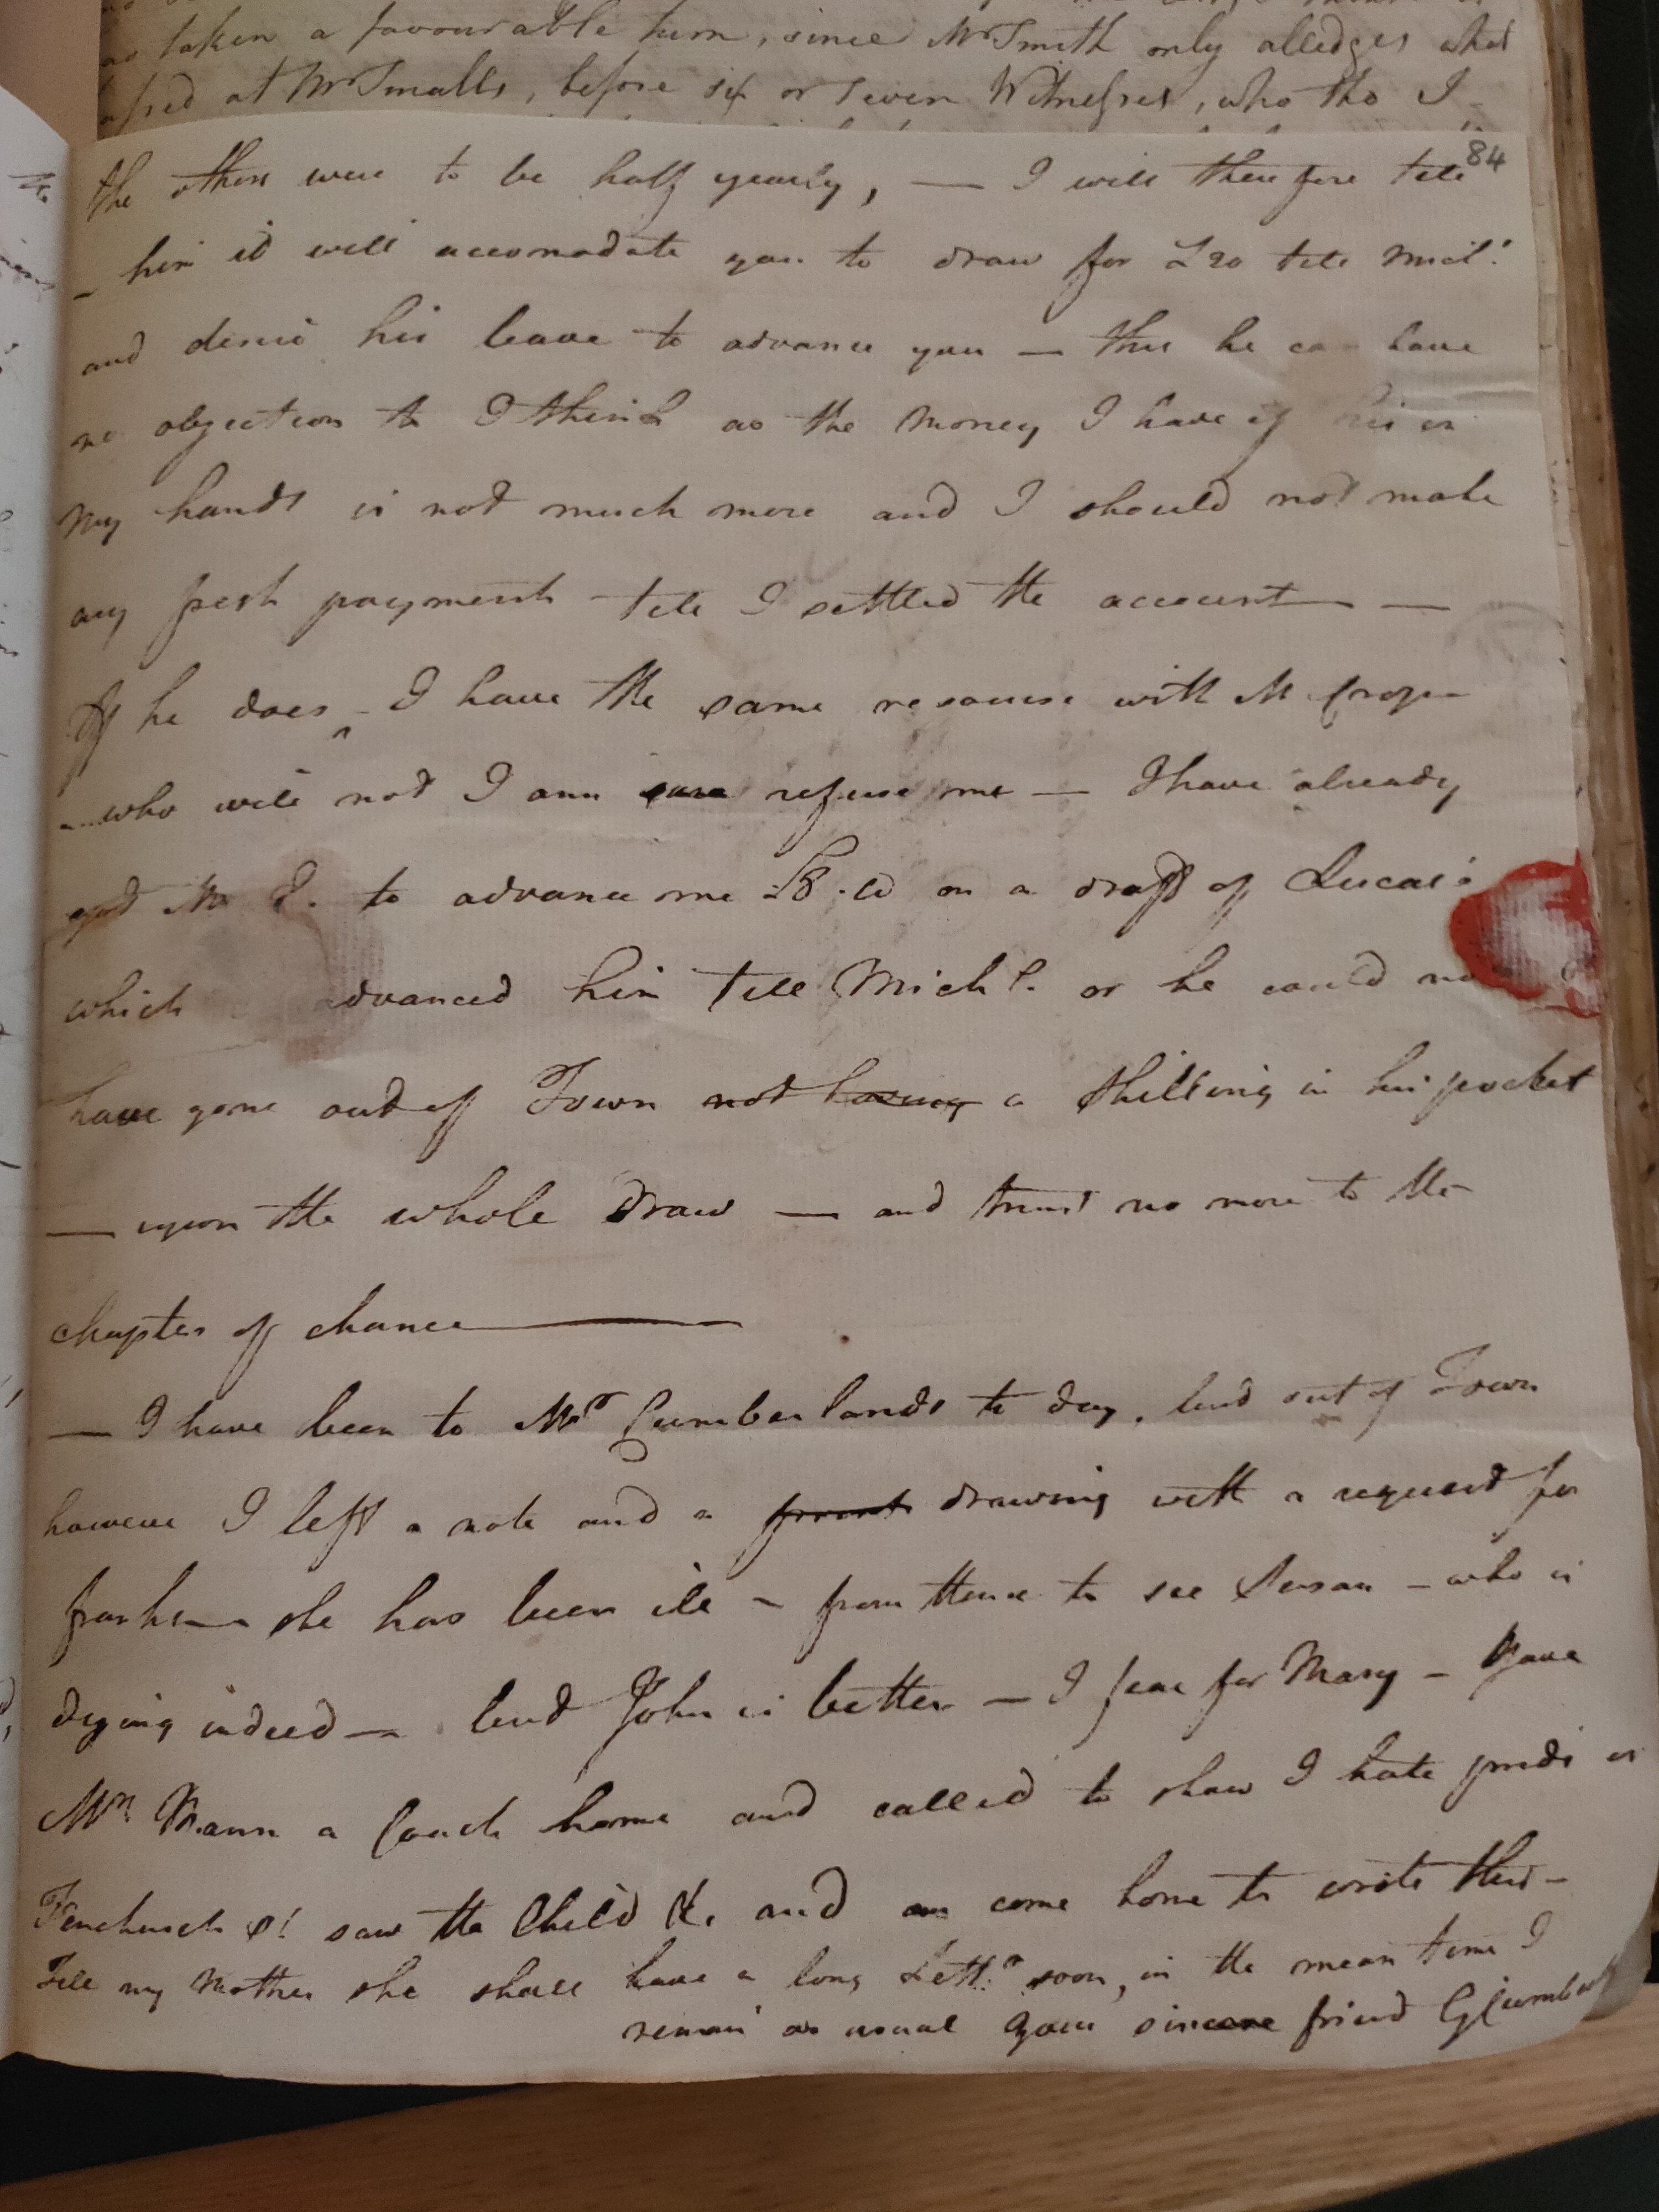 as taken a favourable turn, since Mr Smith only alledges what
assed at Mr Smalls, before six or seven Witnesses, who tho I
84
the others were to be half yearly, — I will therefore tell
– him it will accomodate you to draw for £20 till Micls
and desire his leave to advance you — this he ca have
no objection to I think as the money I have of his in
my hands is not much more and I should not make
any fresh payment till I settled the account —
If he does – I have the same resourse with M
– who will not I am sure refuse me — I have already
got Mr to advance me on a draft of Lucas's
which advanced him till Michs. or he could no
have gone out of Town not having a shilling in his pocket
— upon the whole Draw — and trust no more to the
chapter of chance —
— I have been to Mrs Cumberlands to day, but out of Town
however I left a note and a drawing with a request for
franks — she has been ill – from thence to see Susan – who is
dying indeed — but John is better — I fear for Mary – Gave
Mrs Mann a Coach home and called to shew I hate pride in
Fenchurch St saw the Child &c and am come home to write this –
Tell my Mother she shall have a long Lettr soon, in the mean time I
remain as usual your sincere friend GCumberl